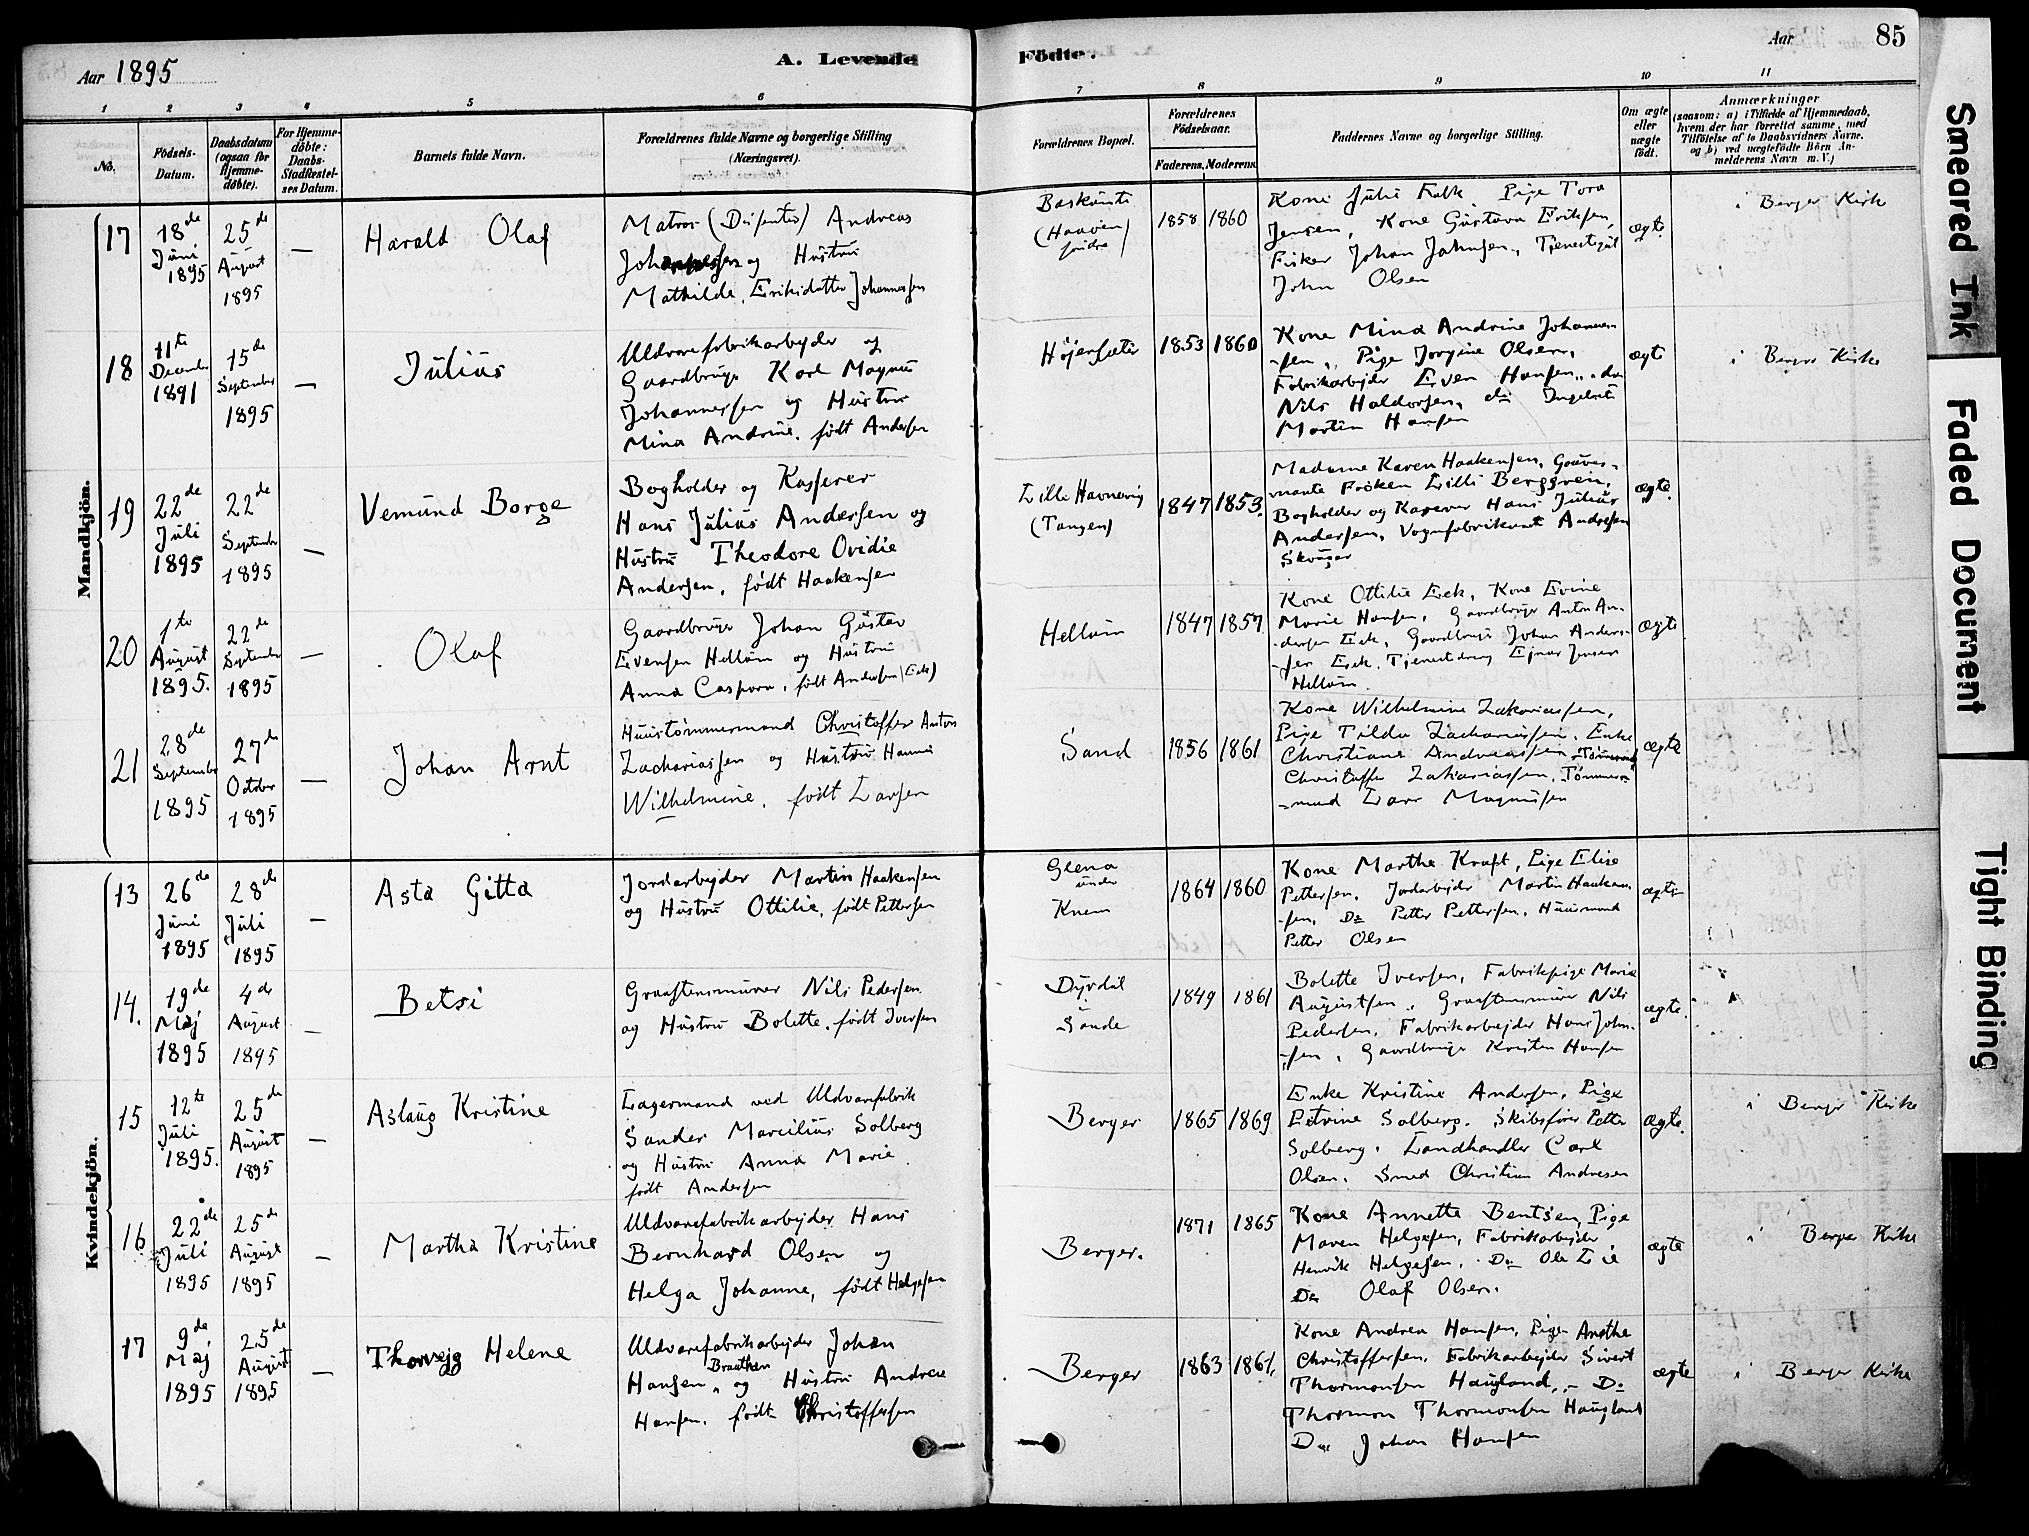 Aar 1895
A. Levende
Födte.
Aar
85
1
2
3
4
5
6
7
8
9
10
11
No.
Födsels-
Datum.
Daabsdatum
(ogsaa for
Hjemme-
døbte).
For Hjemme-
døbte:
Daabs-
Stadfæstel-
ses Datum.
Barnets fulde Navn.
Forældrenes fulde Navne og borgerlige Stilling
(Næringsvei).
Forældrenes Bopæl.
Forældrenes
Födselsaar.
Faderens. Moderens.
Faddernes Navne og borgerlige Stilling.
Om ægte
eller
uægte
födt.
Anmærkninger
(saasom: a) i Tilfælde af Hjemmedaab,
hvem der har forrettet samme, med
Tilföielse af to Daabsvidners Navne.
og b) ved uægtefödte Börn An-
melderens Navn m. V.)
Mandkjön.
17
18de
Juni
1895
25de
August
1895
—
Harald Olaf
Matros (Disputis) Andreas
Johannessen og Hustru
Mathilde, Eriksdatter Johannessen
(Haaven)
1858 1860
Kone Julie Falk, Pige Tora
Jensen, Kone Gustava Eriksen,
Fisker Johan Johnsen, Tjenestegut
John Olsen
ægte
i Berger Kirke
18
11te
December
1891
15de
September
1895
—
Julius
Uldvarefabrikarbejder og
Gaardbruger Karl Magnus
Johannessen og Hustru
Mina Andrine, født Andersen
Højensæter
1853 1860
Kone Mina Andrine Johannes-
-sen, Pige Jorgine Olsen,
Fabrikarbejder Even Hansen, do
Nils Haldorsen, do Ingebret
Martin Hansen
ægte
i Berger Kirke
19
22de
Juli
1895
22de
September
1895
—
Vemund Borge
Bogholder og Kasserer
Hans Julius Andersen og
Hustru Theodore Ovidie
Andersen, født Haakensen
Lille Havnevig
(Tangen)
1847 1853.
Madame Karen Haakensen, Gouver-
nante Frøken Lilli Berggren,
Bogholder og Kasserer Hans Julius
Andersen, Vognfabrikant Andersen
Skouger
ægte
20
1ste
August
1895.
22de
September
1895
—
Olaf
Gaardbruger Johan Gustav
Evensen Hellum og Hustru
Anna Caspara, født Andersen (Eek)
Hellum
1847 1857
Kone Ottilie Eek, Kone Evine
Marie Hansen, Gaardbruger Anton An-
dersen Eek, Gaardbruger Johan Anders-
-sen Eek, Tjenestdreng Ejnar Jensen
Hellum.
ægte
21
28de
September
1895
27de
October
1895
—
Johan Arnt
Huustømmermand Christoffer Anton
Zachariassen og Hustru Hanna
Wilhelmine, født Larsen
Sand
1856 1861
Kone Wilhelmine Zakariassen,
Pige Tilda Zachariassen, Enke
Christiane Andreassen, Tømmermd
Christoffer Zakariassen, Tømmer-
-mand Lars Magnussen
ægte
Kvindekjön.
13
26de
Juni
1895
28de
Juli
1895
—
Asta Gitta
Jordarbejder Martin Haakensen
og Hustru Ottilie, født Pettersen
Glena
under
Knem
1864 1860
Kone Marthe Kraft, Pige Elise
Pettersen, Jordarbejder Martin Haaken-
-sen, Do Petter Pettersen, Huusmand
Petter Olsen
ægte
14.
19de
Maj
1895
4de
August
1895
—
Betsi
Graastensmurer Nils Pedersen
og Hustru Bolette, født Iversen
Dyrdal
Sande
1849 1861
Bolette Iversen, Fabrikpige Marie
Augustsen, Graastensmurer Nils
Pedersen, Fabrikarbejder Hans John-
-sen, Gaardbruger Kristen Hansen
ægte.
15
12te
Juli
1895.
25de
August
1895
—
Aslaug Kristine
Lagermand ved Uldvarefabrik
Sander Marcilius Solberg
og Hustru Anna Marie
født Andersen
Berger
1865 1869
Enke Kristine Andersen, Pige
Petrine Solberg. Skibsfører Petter
Solberg, Landhandler Carl
Olsen. Smed Christian Andresen
ægte.
i Berger Kirke
16
22de
Juli
1895
25de
August
1895
—
Martha Kristine
Uldvarefabrikarbejder Hans
Bernhard Olsen og
Helga Johanne, født Helgesen
Berger.
1871 1865
Kone Annette Bentsen, Pige
Maren Helgesen, Fabrikarbejder
Henrik Helgesen. Do Ole Lie
Do Olaf Olsen.
ægte
i Berger Kirke
17
9de
Maj
1895
25de
August
1895
—
Thorvejg Helene
Uldvarefabrikarbejder Johan
Braathen
Hansen, og Hustru Andrea
Hansen, født Christoffersen
Berger
1863 1861.
Kone Andrea Hansen, Pige Anethe
Christoffersen, Fabrikarbejder Sivert
Thormonsen Haugland, – Do
Thormon Thormonsen Haugland
Do Johan Hansen
ægte
i Berger Kirke
Smeared Ink
Faded Document
Tight Binding